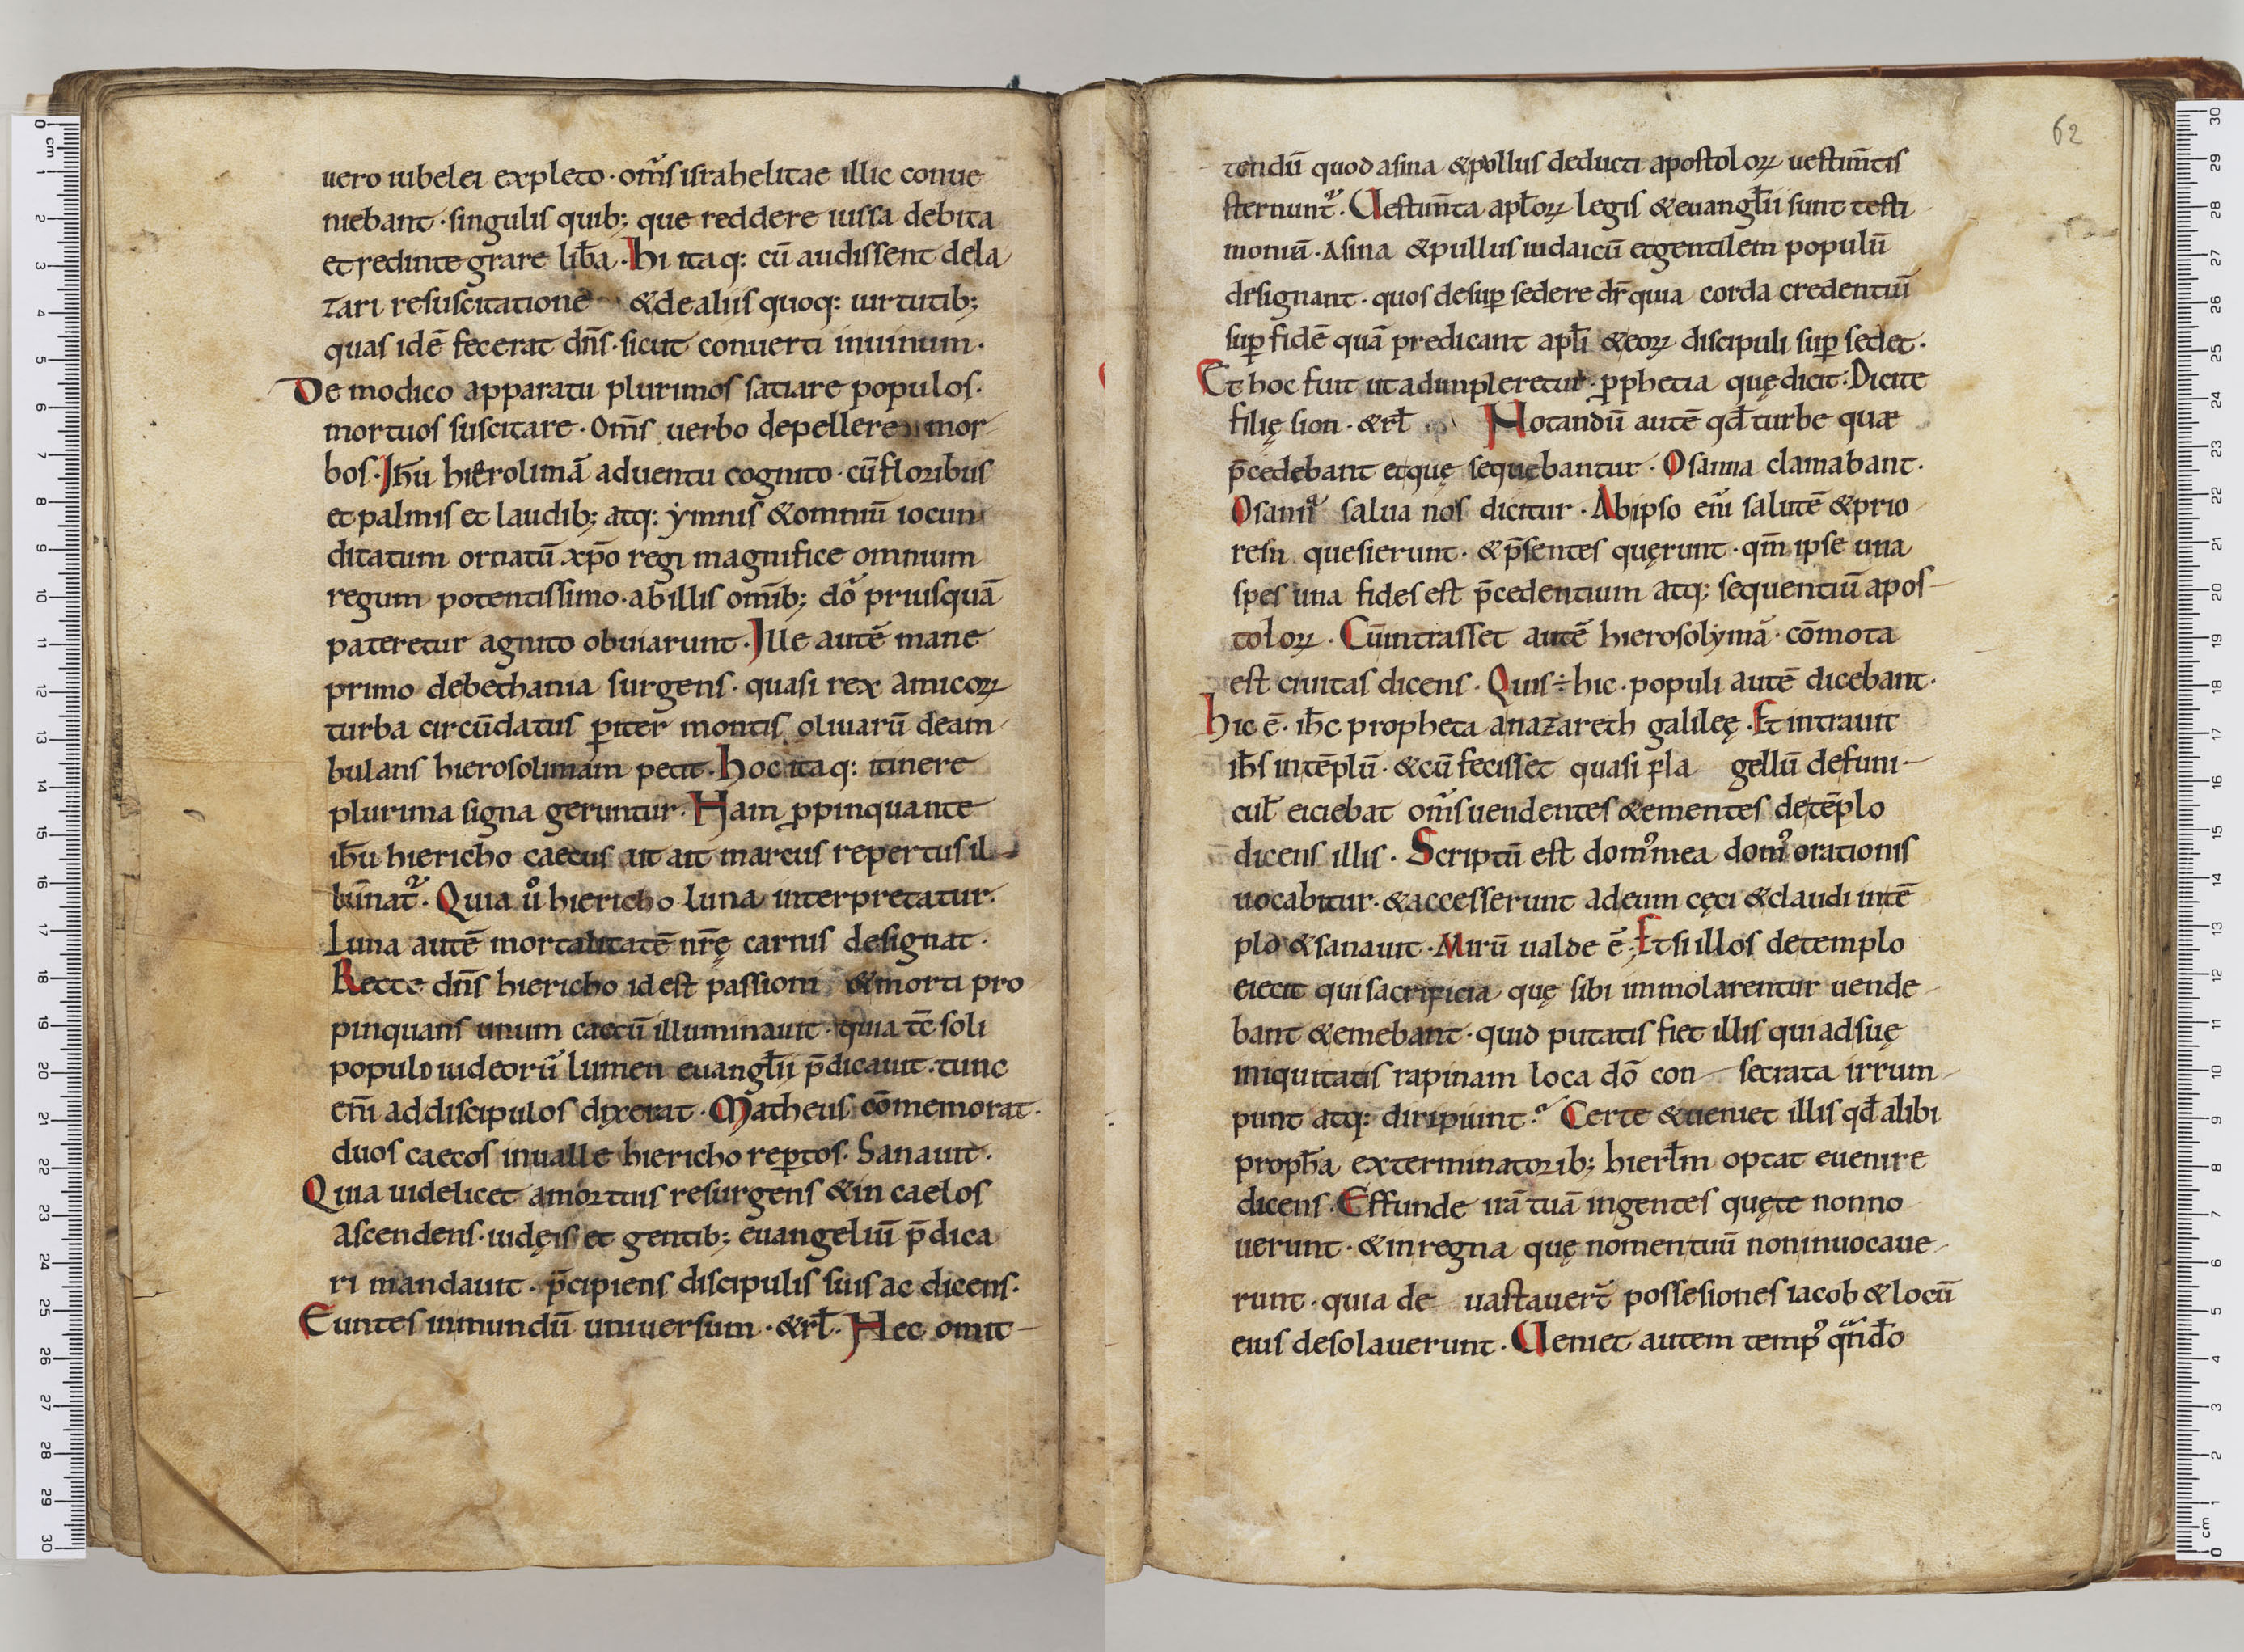 uero iubelei expleto · om̄s israhelitae illic conue
niebant · singulis quib; que reddere iussa debita
et redinte grare lib̄a · Hi itaq: cū audissent de la
zari resuscitatione & de aliis quoq: uirtutib;
quas idē fecerat dn̄s · sicut conuerti in uinum ·
De modico apparatu plurimos satiare populos ·
mortuos suscitare · Om̄s uerbo depellere mor
bos · Ih̄u hierolimā aduentu cognito · cū floribus
et palmis et laudib; atq: ymnis & omniū iocun
ditatum ornatū · xp̄o regi magnifice omnium
regum potentissimo · ab illis om̄ib; dō priusquā
pateretur agnito obuiarunt · Ille autē mane
primo de bethania surgens · quasi rex amicoꝝ
turba circūdatus ꝑ iter montis oliuarū deam
bulans hierosolimam petit · Hoc itaq: itinere
plurima signa geruntur · Nam ꝓpinquante
ih̄u hiericho caecus ut ait marcus repertus il
lūinat᷑ · Quia u͛o hiericho luna interpretatur ·
Luna autē mortalitatē nr̄ę carnis designat ·
Recte dn̄s hiericho id est passioni & morti pro
pinquans unum caecū illuminauit · quia tc̄ soli
populo iudeorū lumen euangl̄ii p̄dicauit · tunc
eni̅ ad discipulos dixerat · Matheus cōmemorat ·
duos caecos in ualle hiericho reꝑtos · Sanauit ·
Quia uidelicet a mortuis resurgens & in caelos
ascendens · iudęis et gentib; euangeliū p̄dica
ri mandauit · p̄cipiens discipulis suis ac dicens ·
Euntes in mundū uniuersum · & rl̄ · Nec omit
62
tendū quod asina & pollus deducti apostoloꝝ uestim̄tis
sternunt᷑ · Uestim̄ta apl̄oꝝ legis & euangl̄ii sunt testi
moniū · Asina & pullus iudaicū et gentilem populū
designant · quos desuꝑ sedere dr̄ quia corda credentiū
suꝑ fidē quā predicant apl̄i & eoꝝ discipuli suꝑ sedet ·
Et hoc fuit ut adimpleretur · ꝓphetia quę dicit · Dicite
filię sion · & rl̄ Notandū autē qd̄ turbe quae
p̄cedebant et quę sequebantur · Osanna clamabant ·
Osann᷑ salua nos dicitur · Ab ipso eni̅ salutē & prio
resn quesierunt · & p̄sentes quęrunt · qm̄ ipse una
spes una fides est p̄cedentium atq; sequentiū apos
toloꝝ · Cū intrasset autē hierosolymā · cōmota
est ciuitas dicens · Quis ÷ hic · populi autē dicebant ·
hic ē · ih̄c propheta a nazareth galileę · Et intrauit
ih̄s in tēplū · & cū fecisset quasi fla gellū de funi
cul̄ eiciebat om̄s uendentes & ementes de tēplo
dicens illis · Scriptū est dom᾽ mea dom᾽ orationis
uocabitur · & accesserunt ad eum cęci & claudi in tē
plo & sanauit · Mirū ualde ē · Et si illos de templo
eiecit qui sacrificia quę sibi immolarentur uende
bant & emebant · quid putatis fiet illis qui ad suę
iniquitatis rapinam loca dō con secrata irrum
punt atq: diripiunt ? Certe & ueniet illis qd̄ alibi
proph̄a exterminatorib; hierl̄m optat euenire
dicens · Effunde irā tuā in gentes quę te non no
uerunt · & in regna quę nomen tuū non inuocaue
runt · quia de uastauer̄t possesiones iacob & locū
eius desolauerunt · Ueniet autem temp᾽ qn̄do